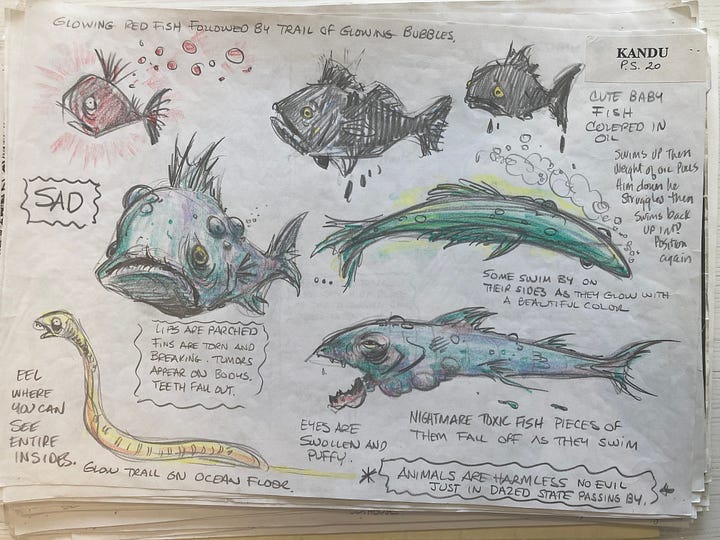 GLOWING RED FISH FOLLOWED BY TRAIL OF GLOWING BUBBLES.
KANDU
P.S. 20
CUTE BABY
FISH
COLORED IN
OIL
SWIMS UP THEN
WEIGHT OF OIL PULLS
HIM DOWN HE
STRUGGLES THEN
SWIMS BACK
UP INTO
POSITION
AGAIN
SAD
SOME SWIM BY ON
THEIR SIDES AS THEY GLOW WITH
A BEAUTIFUL COLOR
LIPS ARE PARCHED
FINS ARE TORN AND
BREAKING. TUMORS
APPEAR ON BODYS.
TEETH FALL OUT.
EEL
WHERE
YOU CAN
SEE
ENTIRE
INSIDES.
GLOW TRAIL ON OCEAN FLOOR.
EYES ARE
SWOLLEN AND
PUFFY.
NIGHTMARE TOXIC FISH PIECES OF
THEM FALL OFF AS THEY SWIM
* ANIMALS ARE HARMLESS NO EVIL
JUST IN DAZED STATE PASSING BY.